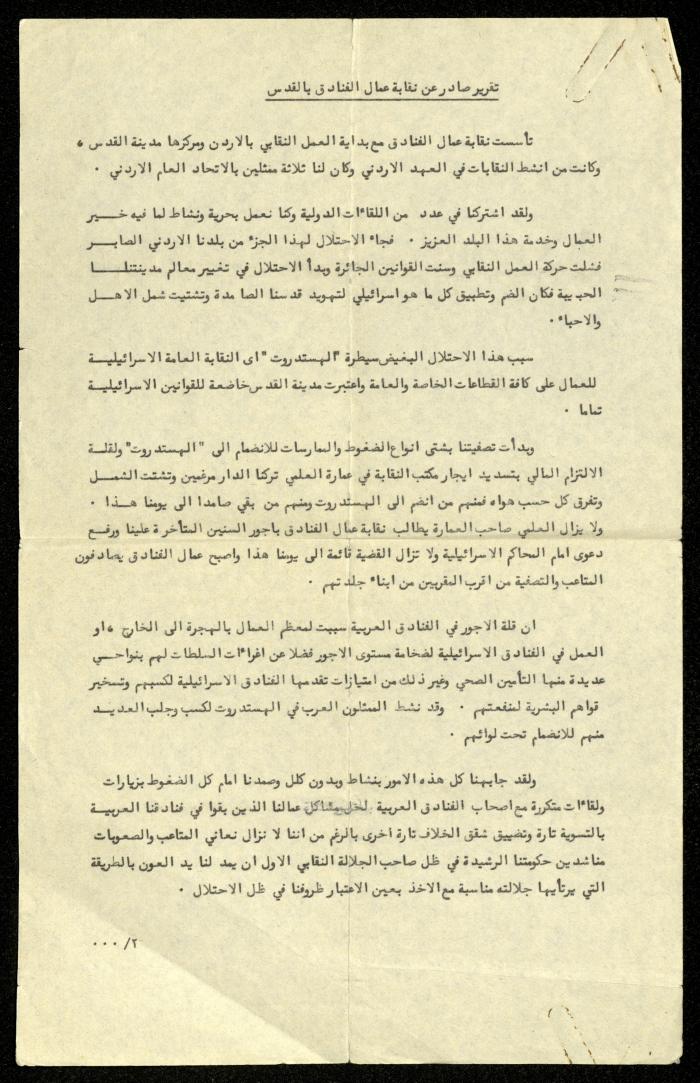 تقرير صادر عن نقابة عمال الفنادق بالقدس
تأسست نقابة عمال الفنادق مع بداية العمل النقابي بالاردن ومركزها مدينة القدس ،
وكانت من انشط النقابات في العهد الاردني وكان لنا ثلاثة ممثلين بالاتحاد العام الاردني ٠
ولقد اشتركنا في عدد من اللقاءات الدولية وكنا نعمل بحرية ونشاط لما فيه خـــير
العمال وخدمة هذا البلد العزيز ٠ فجاء الاحتلال لهذا الجزء من بلدنا الاردني الصابـر
فشلت حركة العمل النقابي وسنت القوانين الجائرة وبدأ الاحتلال في تغيير معالم مدينتنـــا
الحبيبة فكان الضم وتطبيق كل ما هو اسرائيلي لتهويد قدسنا الصامدة وتشتيت شمل الاهــل
والاحباء ٠
سبب هذا الاحتلال البغيض سيطرة "الهستدروت" اى النقابة العامة الاسرائيليـــة
للعمال على كافة القطاعات الخاصة والعامة واعتبرت مدينة القدس خاضعة للقوانين الاسرائيليـة
تماما ٠
وبدأت تصفيتنا بشتى انواع الضغوط والممارسات للانضمام الى "الهستدروت" ولقلـة
الالتزام المالي بتسديد ايجار مكتب النقابة في عمارة العلمي تركنا الدار مرغمين وتشتت الشمــل
وتفرق كل حسب هواه فمنهم من انضم الى الهستدروت ومنهم من بقي صامدا الى يومنا هــذا ٠
ولا يزال العلمي صاحب العمارة يطالب نقابة عمال الفنادق باجور السنين المتأخرة علينا ورفـع
دعوى امام المحاكم الاسرائيلية ولا تزال القضية قائمة الى يومنا هذا واصبح عمال الفنادق يصادفون
المتاعب والتصفية من اقرب المقربين من ابناء جلدتهم ٠
ان قلة الاجور في الفنادق العربية سببت لمعظم العمال بالهجرة الى الخارج ، او
العمل في الفنادق الاسرائيلية لضخامة مستوى الاجور فضلا عن اغراءات السلطات لهم بنواحــي
عديدة منها التأمين الصحي وغير ذلك من امتيازات تقدمها الفنادق الاسرائيلية لكسبهم وتسخير
قواهم البشرية لمنفعتهم ٠ وقد نشط الممثلون العرب في الهستدروت لكسب وجلب العديـد
منهم للانضمام تحت لوائهم ٠
ولقد جابهنا كل هذه الامور بنشاط وبدون كلل وصمدنا امام كل الضغوط بزيارات
ولقاءات متكررة مع اصحاب الفنادق العربية لحل مشاكل عمالنا الذين بقوا في فنادقنا العربيـة
بالتسوية تارة وتضييق شقق الخلاف تارة اخرى بالرغم من اننا لا نزال نعاني المتاعب والصعوبات
مناشدين حكومتنا الرشيدة في ظل صاحب الجلالة النقابي الاول ان يمد لنا يد العون بالطريقة
التي يرتأيها جلالته مناسبة مع الاخذ بعين الاعتبار ظروفنا في ظل الاحتلال ٠
٢/ ٠٠٠